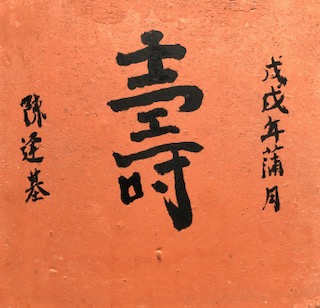 戊戌年蒲月
壽
陳運基